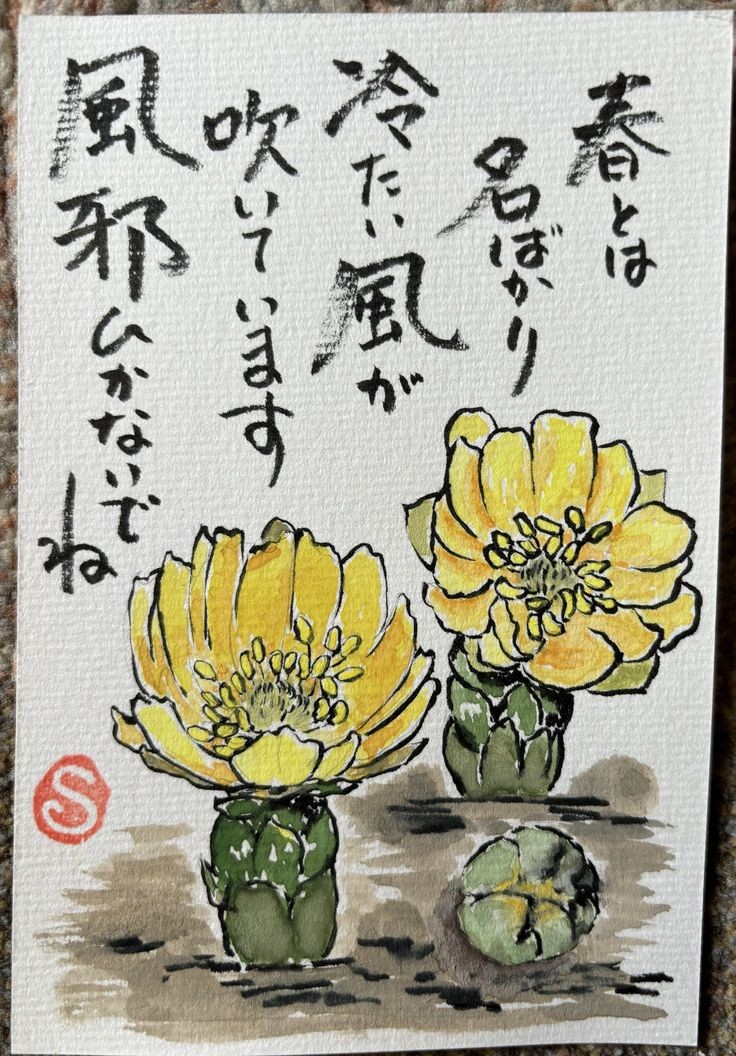 春とは
名ばかり
冷たい風が
吹いています
風邪ひかないで
ね
S